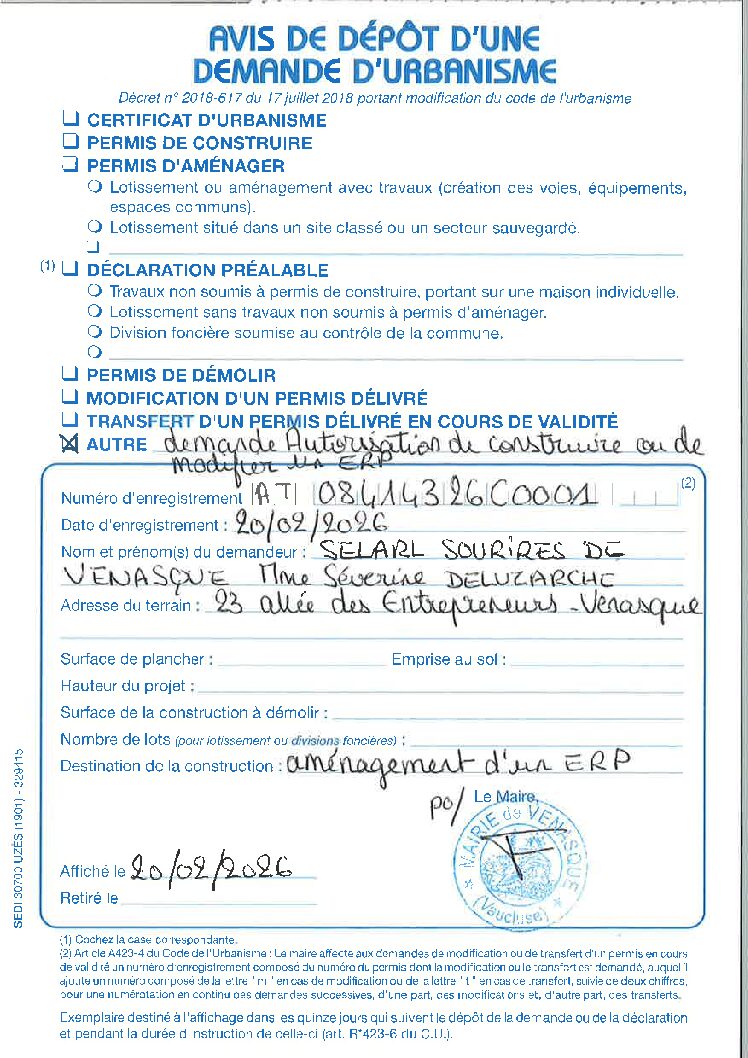 AVIS DE DÉPÔT D'UNE
DEMANDE D'URBANISME
Décret n° 2018-617 du 17 juillet 2018 portant modification du code de l'urbanisme
CERTIFICAT D'URBANISME
PERMIS DE CONSTRUIRE
PERMIS D'AMÉNAGER
Lotissement ou aménagement avec travaux (création des voies, équipements,
espaces communs).
Lotissement situé dans un site classé ou un secteur sauvegardé.
(1) DÉCLARATION PRÉALABLE
Travaux non soumis à permis de construire, portant sur une maison individuelle.
Lotissement sans travaux non soumis à permis d'aménager.
Division foncière soumise au contrôle de la commune.
PERMIS DE DÉMOLIR
MODIFICATION D'UN PERMIS DÉLIVRÉ
TRANSFERT D'UN PERMIS DÉLIVRÉ EN COURS DE VALIDITÉ
AUTRE demande Autorisation de construire ou de
modifier un ERP
Numéro d'enregistrement AT 08414326C0001 (2)
Date d'enregistrement : 20/02/2026
Nom et prénom(s) du demandeur : SELARL SOURIRES DE
VENASQUE Mme Séverine DELUZARCHE
Adresse du terrain : 23 allée des Entrepreneurs - Venasque
Surface de plancher : Emprise au sol :
Hauteur du projet :
Surface de la construction à démolir :
Nombre de lots (pour lotissement ou divisions foncières) :
Destination de la construction : aménagement d'un ERP
po/ Le Maire,
MAIRIE de VENASQUE
(Vaucluse)
Affiché le 20/02/2026
Retiré le
SEDI 30700 UZÈS (1901) - 329415
(1) Cochez la case correspondante.
(2) Article A423-4 du Code de l'Urbanisme : Le maire affecte aux demandes de modification ou de transfert d'un permis en cours
de validité un numéro d'enregistrement composé du numéro du permis dont la modification ou le transfert est demandé, auquel il
ajoute un numéro composé de la lettre "m" en cas de modification ou de la lettre "t" en cas de transfert, suivie de deux chiffres,
pour une numérotation en continu des demandes successives, d'une part, des modifications et, d'autre part, des transferts.
Exemplaire destiné à l'affichage dans les quinze jours qui suivent le dépôt de la demande ou de la déclaration
et pendant la durée d'instruction de celle-ci (art. R*423-6 du C.U.).